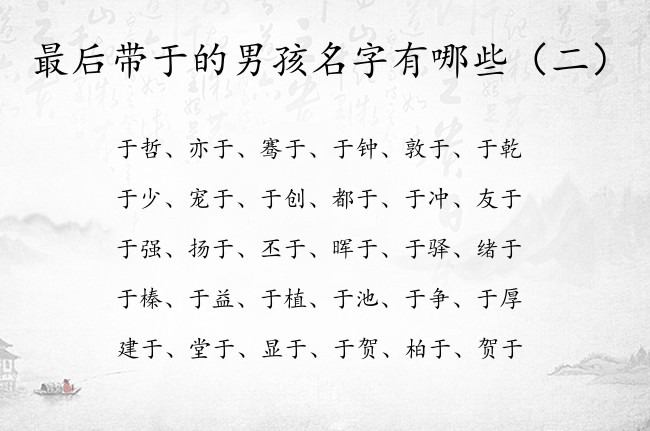 最后带于的男孩名字有哪些（二）
于哲、亦于、骞于、于钟、敦于、于乾
于少、宠于、于创、都于、于冲、友于
于强、扬于、丕于、晖于、于驿、绪于
于榛、于益、于植、于池、于争、于厚
建于、堂于、显于、于贺、柏于、贺于